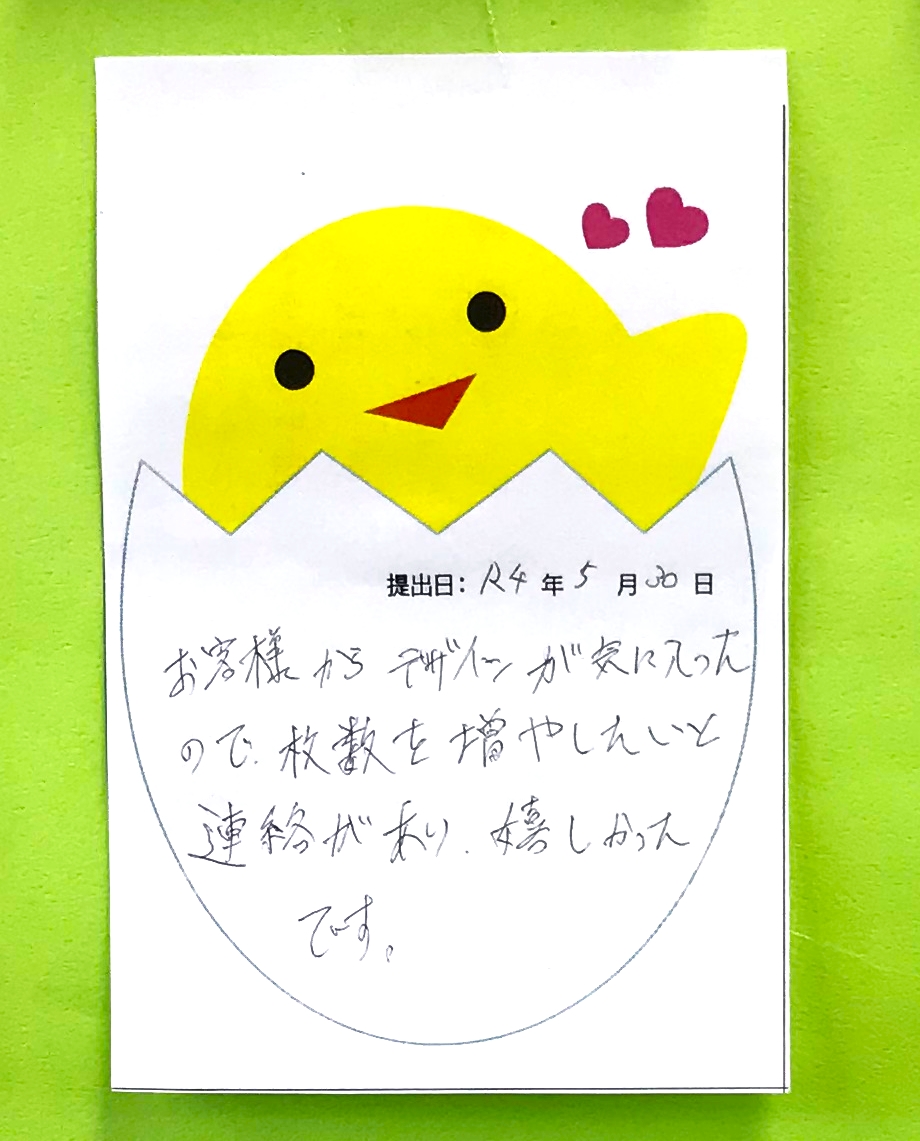 提出日：R4年5月30日
お客様からデザインが気に入った
ので、枚数を増やしたいと
連絡があり、嬉しかった
です。